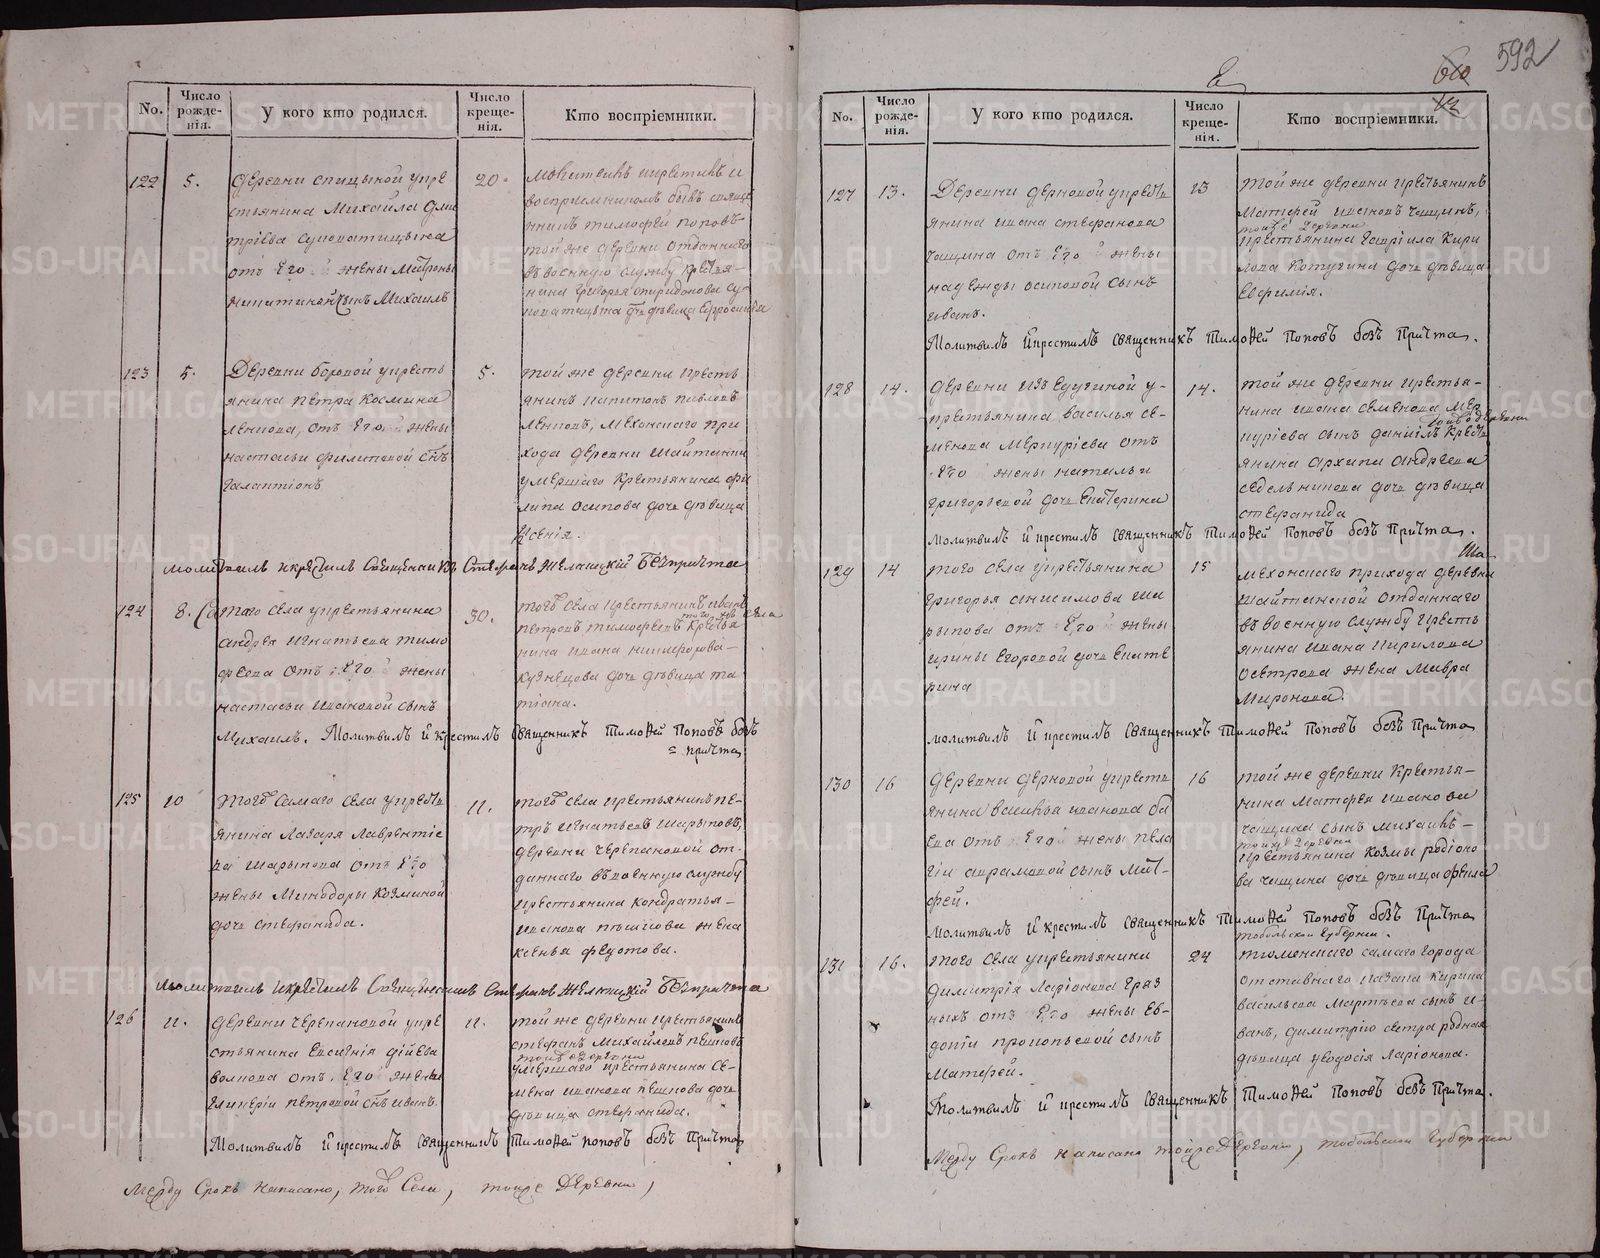 592
No.
Число рожде-нія.
У кого кто родился.
Число креще-нія.
Кто воспріемники.
122
5.
деревни спицыной у кре
стьянина Михайла дми
тріева
отъ его жены Матроны
сынъ Михаилъ
20.
молитвилъ и крестилъ и
воспріемникомъ былъ свяще
нникъ тимофей поповъ
той же деревни отданнаго
въ военную службу крестья-
нина григорья спиридонова су-
дочь дѣвица Ефросинья
123
5.
Деревни боровой у кресть
янина петра Космина
отъ его жены
настасьи филиповой сынъ
галактіонъ
5.
той же деревни кресть
янинъ капитонъ павловъ
Мехонскаго при
хода деревни шайтанки
умершаго крестьянина фи
липа осипова дочь дѣвица
Ксенія.
молитвилъ и крестилъ Священникъ Стефанъ безъ причта
124
8.
того села у крестьянина
андрея игнатьева тимо
феева отъ его жены
настасьи ивановой сынъ
Михаилъ.
30.
того села крестьянинъ иванъ
петровъ тимофеевъ того же села крестья
нина ивана никифорова
кузнецова дочь дѣвица та
тіана.
Молитвилъ и крестилъ Священникъ Тимофей Поповъ безъ
причта
125
10
того самаго села у кресть
янина Лазаря Лаврентіе
ва шарыпова отъ его
жены Минодоры Козминой
дочь стефанида.
11.
того села крестьянинъ пе-
тръ игнатьевъ шарыповъ,
деревни черепановой от-
даннаго въ военную службу
крестьянина кондратья
иванова пѣшкова жена
ксенья федотова.
молитвилъ и крестилъ Священникъ Стефанъ безъ причта
126
11.
деревни черепановой у кре
стьянина Евсигнія
волкова отъ его жены
гликеріи петровой сынъ иванъ
11.
той же деревни крестьянинъ
стефанъ Михайловъ пѣшковъ
той же деревни
умершаго крестьянина се-
мена иванова пѣшкова дочь
дѣвица стефанида.
Молитвилъ и крестилъ священникъ Тимофей поповъ безъ Причта
Между строкъ написано, того Села, тойже Деревни,
No.
Число рожде-нія.
У кого кто родился.
Число креще-нія.
Кто воспріемники.
127
13.
Деревни дерновой у кресть
янина ивана стефанова
чащина отъ его жены
надежды осиповой сынъ
иванъ.
13
той же деревни крестьянинъ
Матфей ивановъ чащинъ,
тойже Деревни
крестьянина гаврила кири
лова Котугина дочь дѣвица
Евфимія.
Молитвилъ и крестилъ священникъ Тимофей Поповъ безъ Причта.
128
14.
деревни изъедугиной у
крестьянина василья се-
менова Меркуріева отъ
его жены натальи
григорьевой дочь Екатерина
14.
той же деревни крестья-
нина ивана семенова мер
куріева сынъ даніилъ тойже деревни кресть
янина архипа андреева
седельникова дочь дѣвица
стефанида
молитвилъ и крестилъ священникъ Тимофей Поповъ безъ Причта.
129
14
того села у крестьянина
григорья анисимова ша
рыпова отъ его жены
ирины Егоровой дочь екате
рина
15
мехонскаго прихода деревни
шайтанской отданнаго
въ военную службу кресть
янина ивана кирилова
острова жена Мавра
Миронова.
молитвилъ и крестилъ священникъ Тимофей Поповъ безъ Причта
130
16
деревни дерновой у кресть
янина василья иванова ба
ева отъ его жены пела
гіи аврамовой сынъ Мат-
фей.
16
той же деревни Крестья-
нина Матфея иванова
чащина сынъ михаилъ
тойже деревни
крестьянина козмы родіоно
ва чащина дочь дѣвица
Молитвилъ и крестилъ священникъ Тимофей Поповъ безъ Причта
131
16.
того села у крестьянина
димитрія Ларіонова граз
ныхъ отъ его жены ев-
докіи прокопьевой сынъ
Матфей.
24
тобольской губерніи.
тюменскаго самаго города
отставнаго казака кирила
васильева мартьева сынъ и-
ванъ, димитрію сестра родная
дѣвица Ларіонова.
Молитвилъ и крестилъ священникъ Тимофей Поповъ безъ Причта.
Между Строкъ написано тойже Деревни, тобольской губерніи